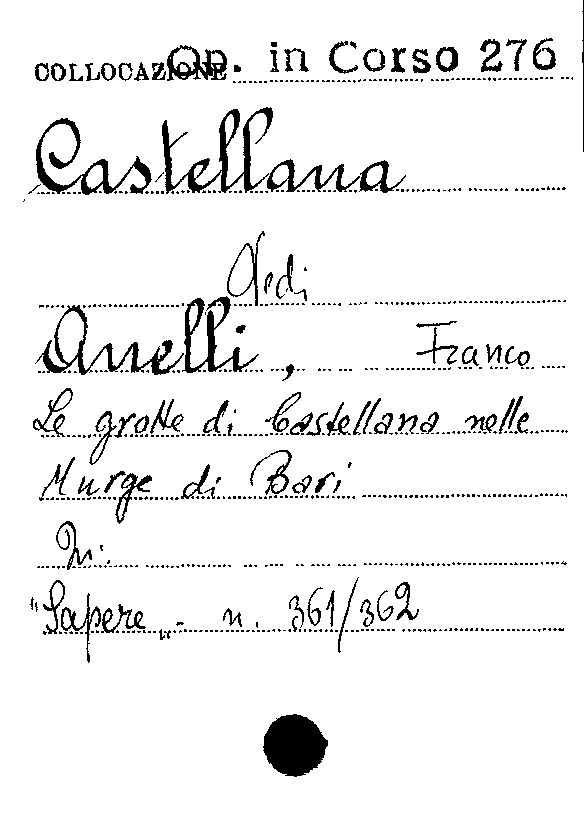 COLLOCAZIONE Op. in Corso 276
Castellana
Vedi
Anelli, Franco
Le grotte di Castellana nelle
Murge di Bari
In:
"Sapere„ - n. 361/362